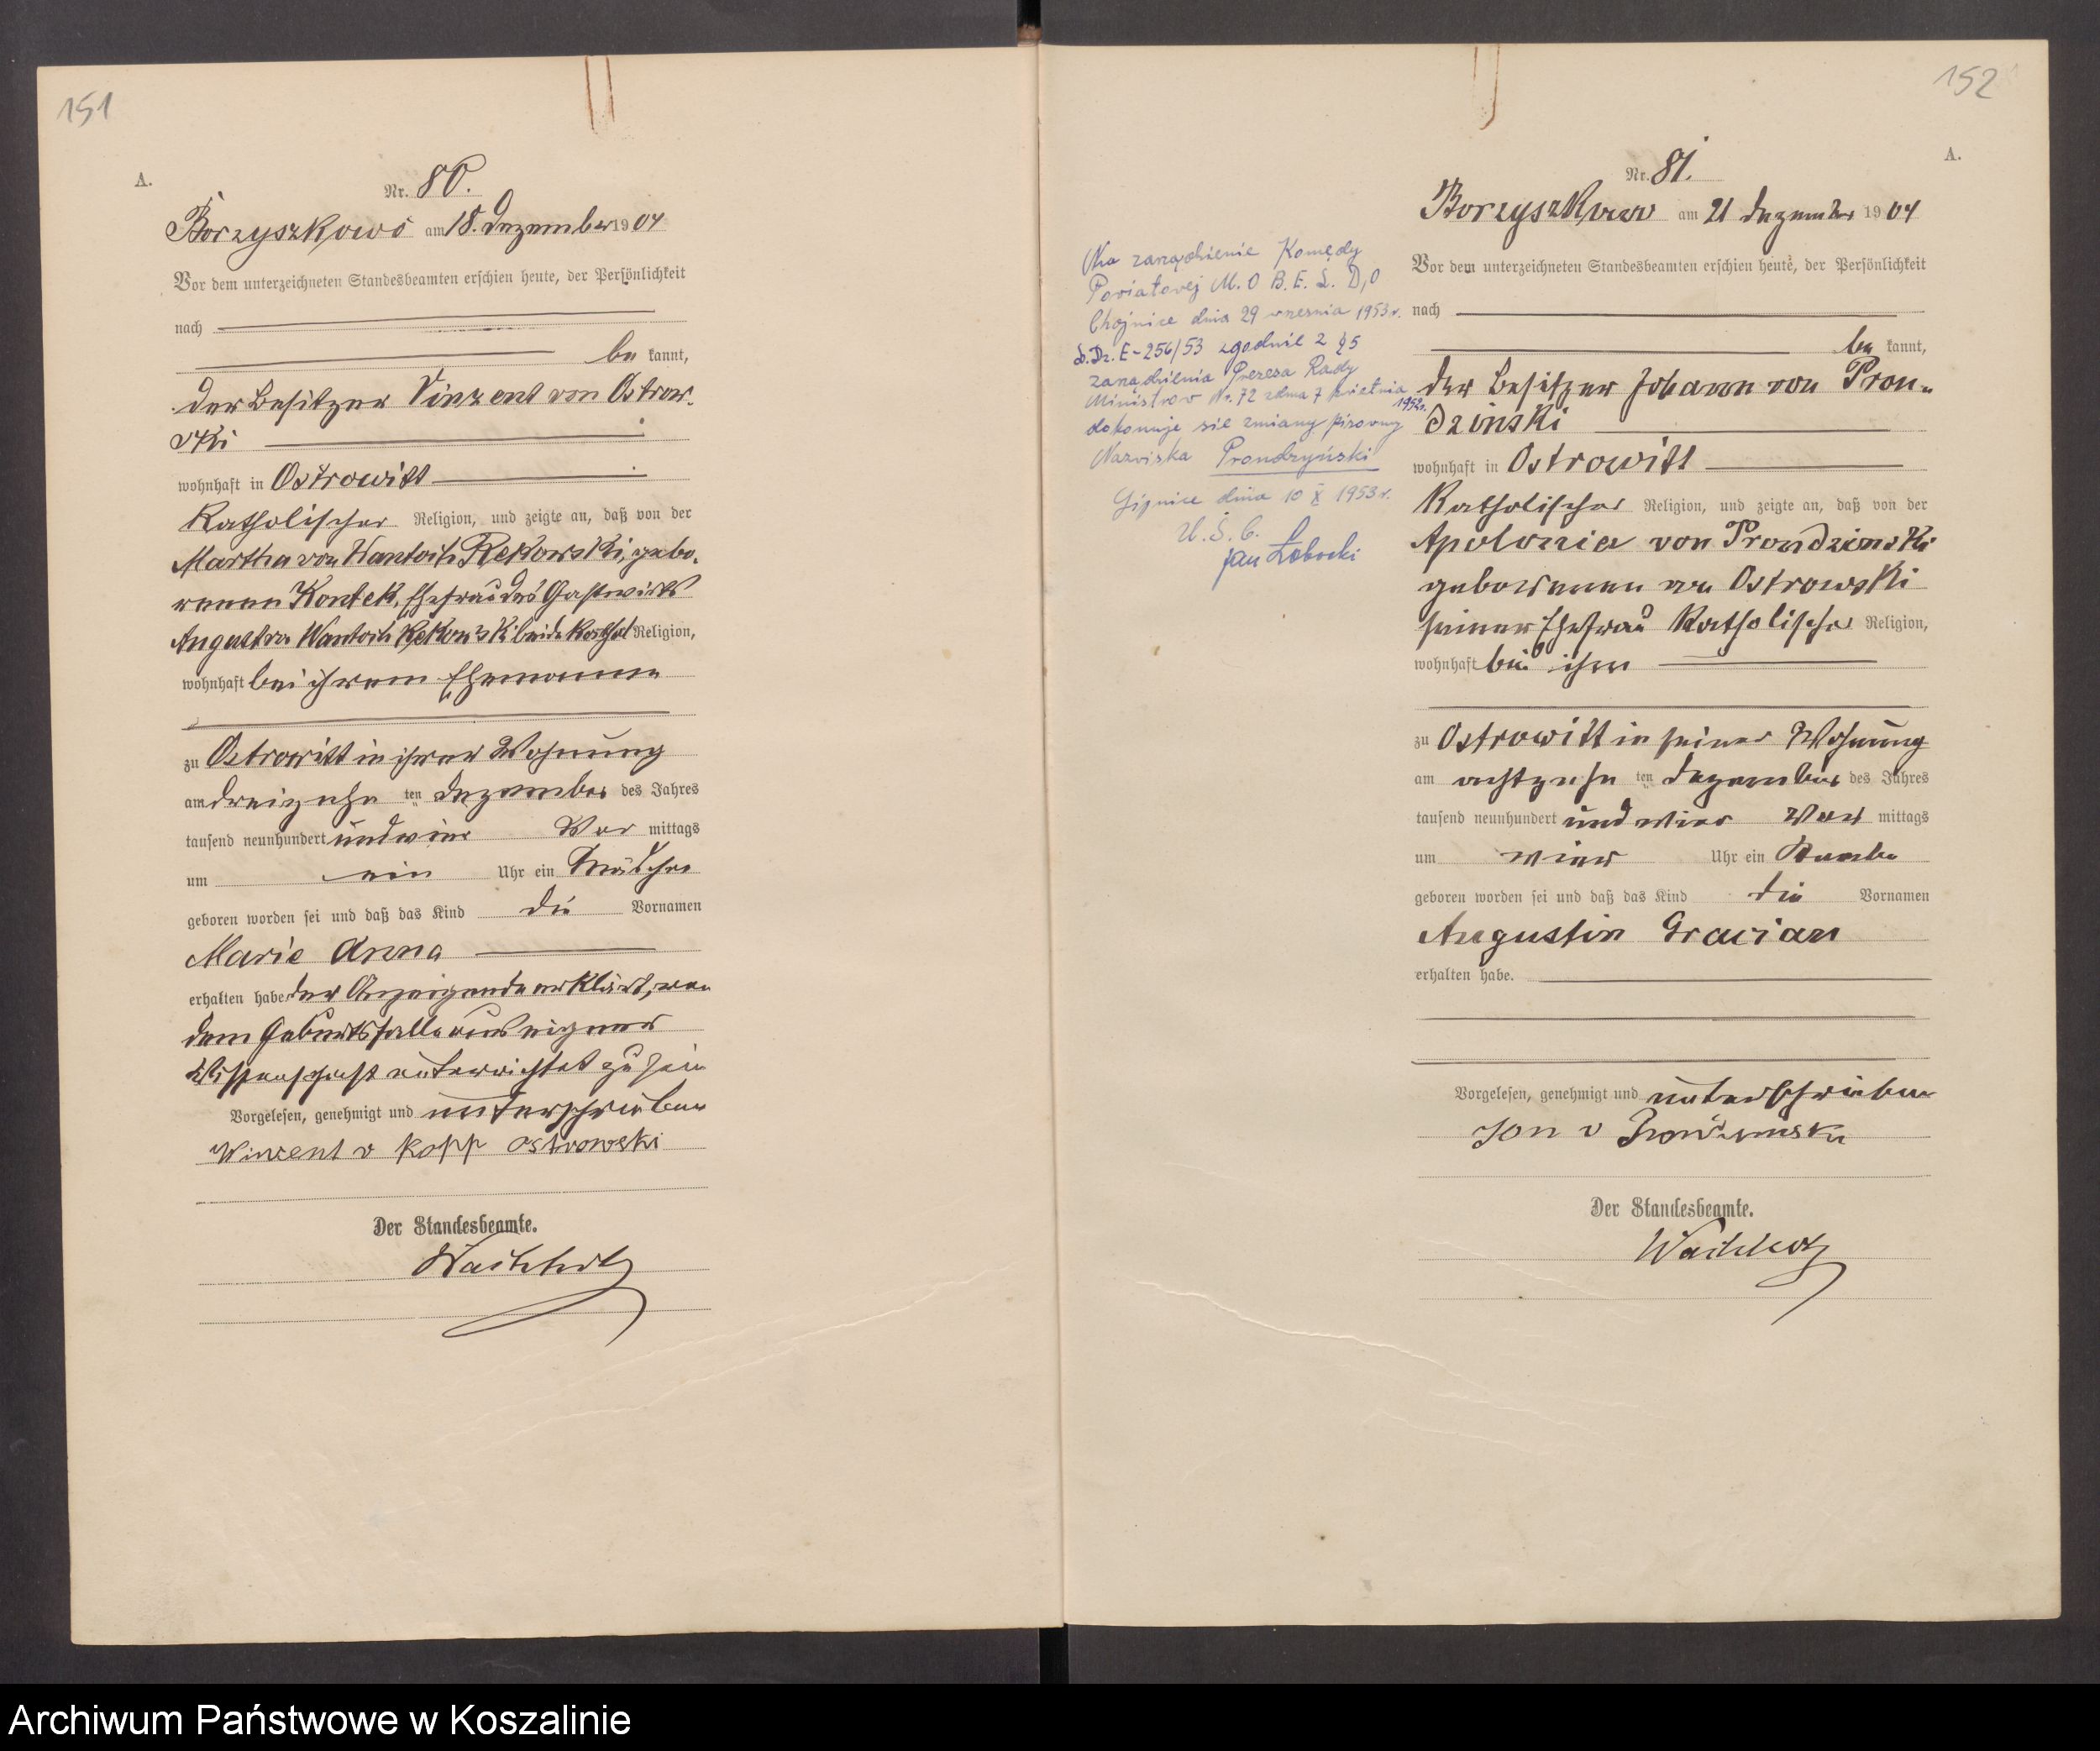 151
A.
Nr. 80.
Borzyszkowo am 18. Dezember 1904
Vor dem unterzeichneten Standesbeamten erschien heute, der Persönlichkeit
nach
be kannt,
der Besitzer Vinzent von Ostrow-
ski
wohnhaft in Ostrowitt
Katholischer Religion, und zeigte an, daß von der
Martha von Wantoch Rekowski, gebo-
renen Kontek, Ehefrau des Gastwirts
August von Wantoch Rekowski beide kathol Religion,
wohnhaft bei ihrem Ehemanne
zu Ostrowitt in ihrer Wohnung
am dreizehn ten Dezember des Jahres
tausend neunhundert und vier Vor mittags
um ein Uhr ein Mädchen
geboren worden sei und daß das Kind die Vornamen
Marie Anna
erhalten habe der Anzeigende erklärt, von
dem Geburtsfalle aus eigener
Wissenschaft unterrichtet zu sein
Vorgelesen, genehmigt und unterschrieben
Winzent v Kopp Ostrowski
Der Standesbeamte.
152
A.
Nr. 81.
Borzyszkowo am 21 Dezember 1904
Vor dem unterzeichneten Standesbeamten erschien heute, der Persönlichkeit
nach
be kannt,
der Besitzer Johann von Pron-
dzinski
wohnhaft in Ostrowitt
Katholischer Religion, und zeigte an, daß von der
Apolonia von Prondzinski
geborenen von Ostrowski
seiner Ehefrau Katholischer Religion,
wohnhaft bei ihm
zu Ostrowitt in seiner Wohnung
am achtzehn ten Dezember des Jahres
tausend neunhundert und vier Vor mittags
um vier Uhr ein Knabe
geboren worden sei und daß das Kind die Vornamen
Augustin Gracian
erhalten habe.
Vorgelesen, genehmigt und unterschrieben
Jon v
Der Standesbeamte.
Na zarządzenie Komędy
Powiatowej M.O B.E.L. D,O
Chojnice dnia 29 wrzesnia 1953 r.
L.Dz. E-256/53 zgodnie z § 5
zarządzenia Prezesa Rady
Ministrow Nr. 72 z dnia 7 kwietnia 1952 r.
dokonuje sie zmiany pisowny
Nazwiska Prondzyński
dnia 10 X 1953 r.
U.S.C.
Jan
Archiwum Państwowe w Koszalinie